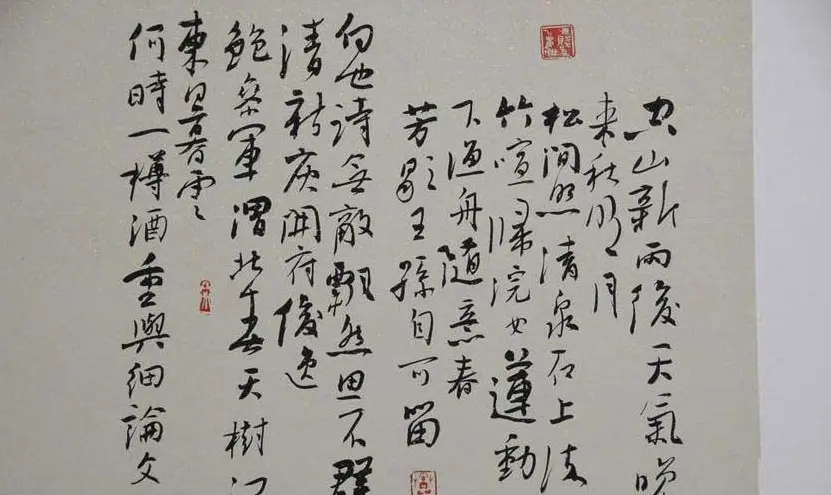 空山新雨後天氣晚
来秋明月
松間照清泉石上流
竹喧歸浣女蓮動
下漁舟隨意春
芳歇王孫自可留
白也詩無敵飄然思不群
清新庾開府俊逸
鮑參軍渭北春天樹江
東日暮雲
何時一樽酒重與細論文